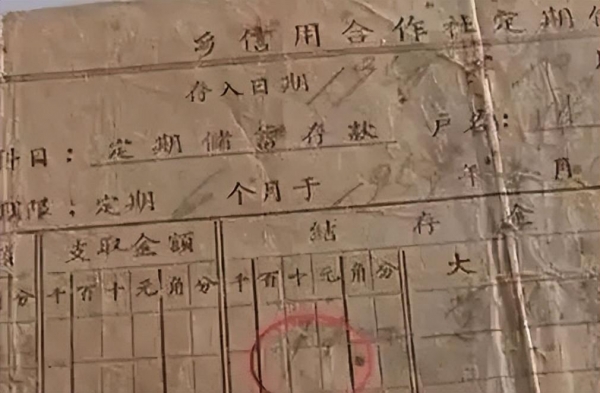 乡信用合作社定期
存入日期 195
科目：定期储蓄存款 户名：
期限：定期 个月于195 年 月
支取金额 结存金
分 千百十元角分 千百十元角分 大